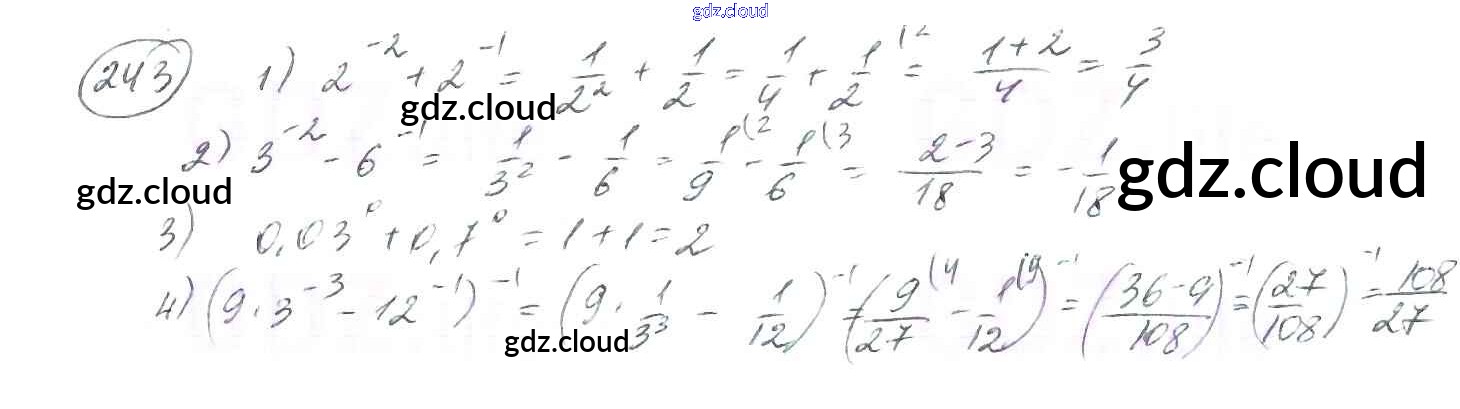 gdz.cloud
243 1) 2⁻² + 2⁻¹ = 1/2² + 1/2 = 1/4 + 1/2 (2 = (1+2)/4 = 3/4
gdz.cloud
2) 3⁻² - 6⁻¹ = 1/3² - 1/6 = 1/9 (2 - 1/6 (3 = (2-3)/18 = -1/18
gdz.cloud gdz.cloud
3) 0,03⁰ + 0,7⁰ = 1 + 1 = 2
4) (9 · 3⁻³ - 12⁻¹)⁻¹ = (9 · 1/3³ - 1/12)⁻¹ = (9/27 (4 - 1/12 (9)⁻¹ = ((36-9)/108)⁻¹ = (27/108)⁻¹ = 108/27
gdz.cloud